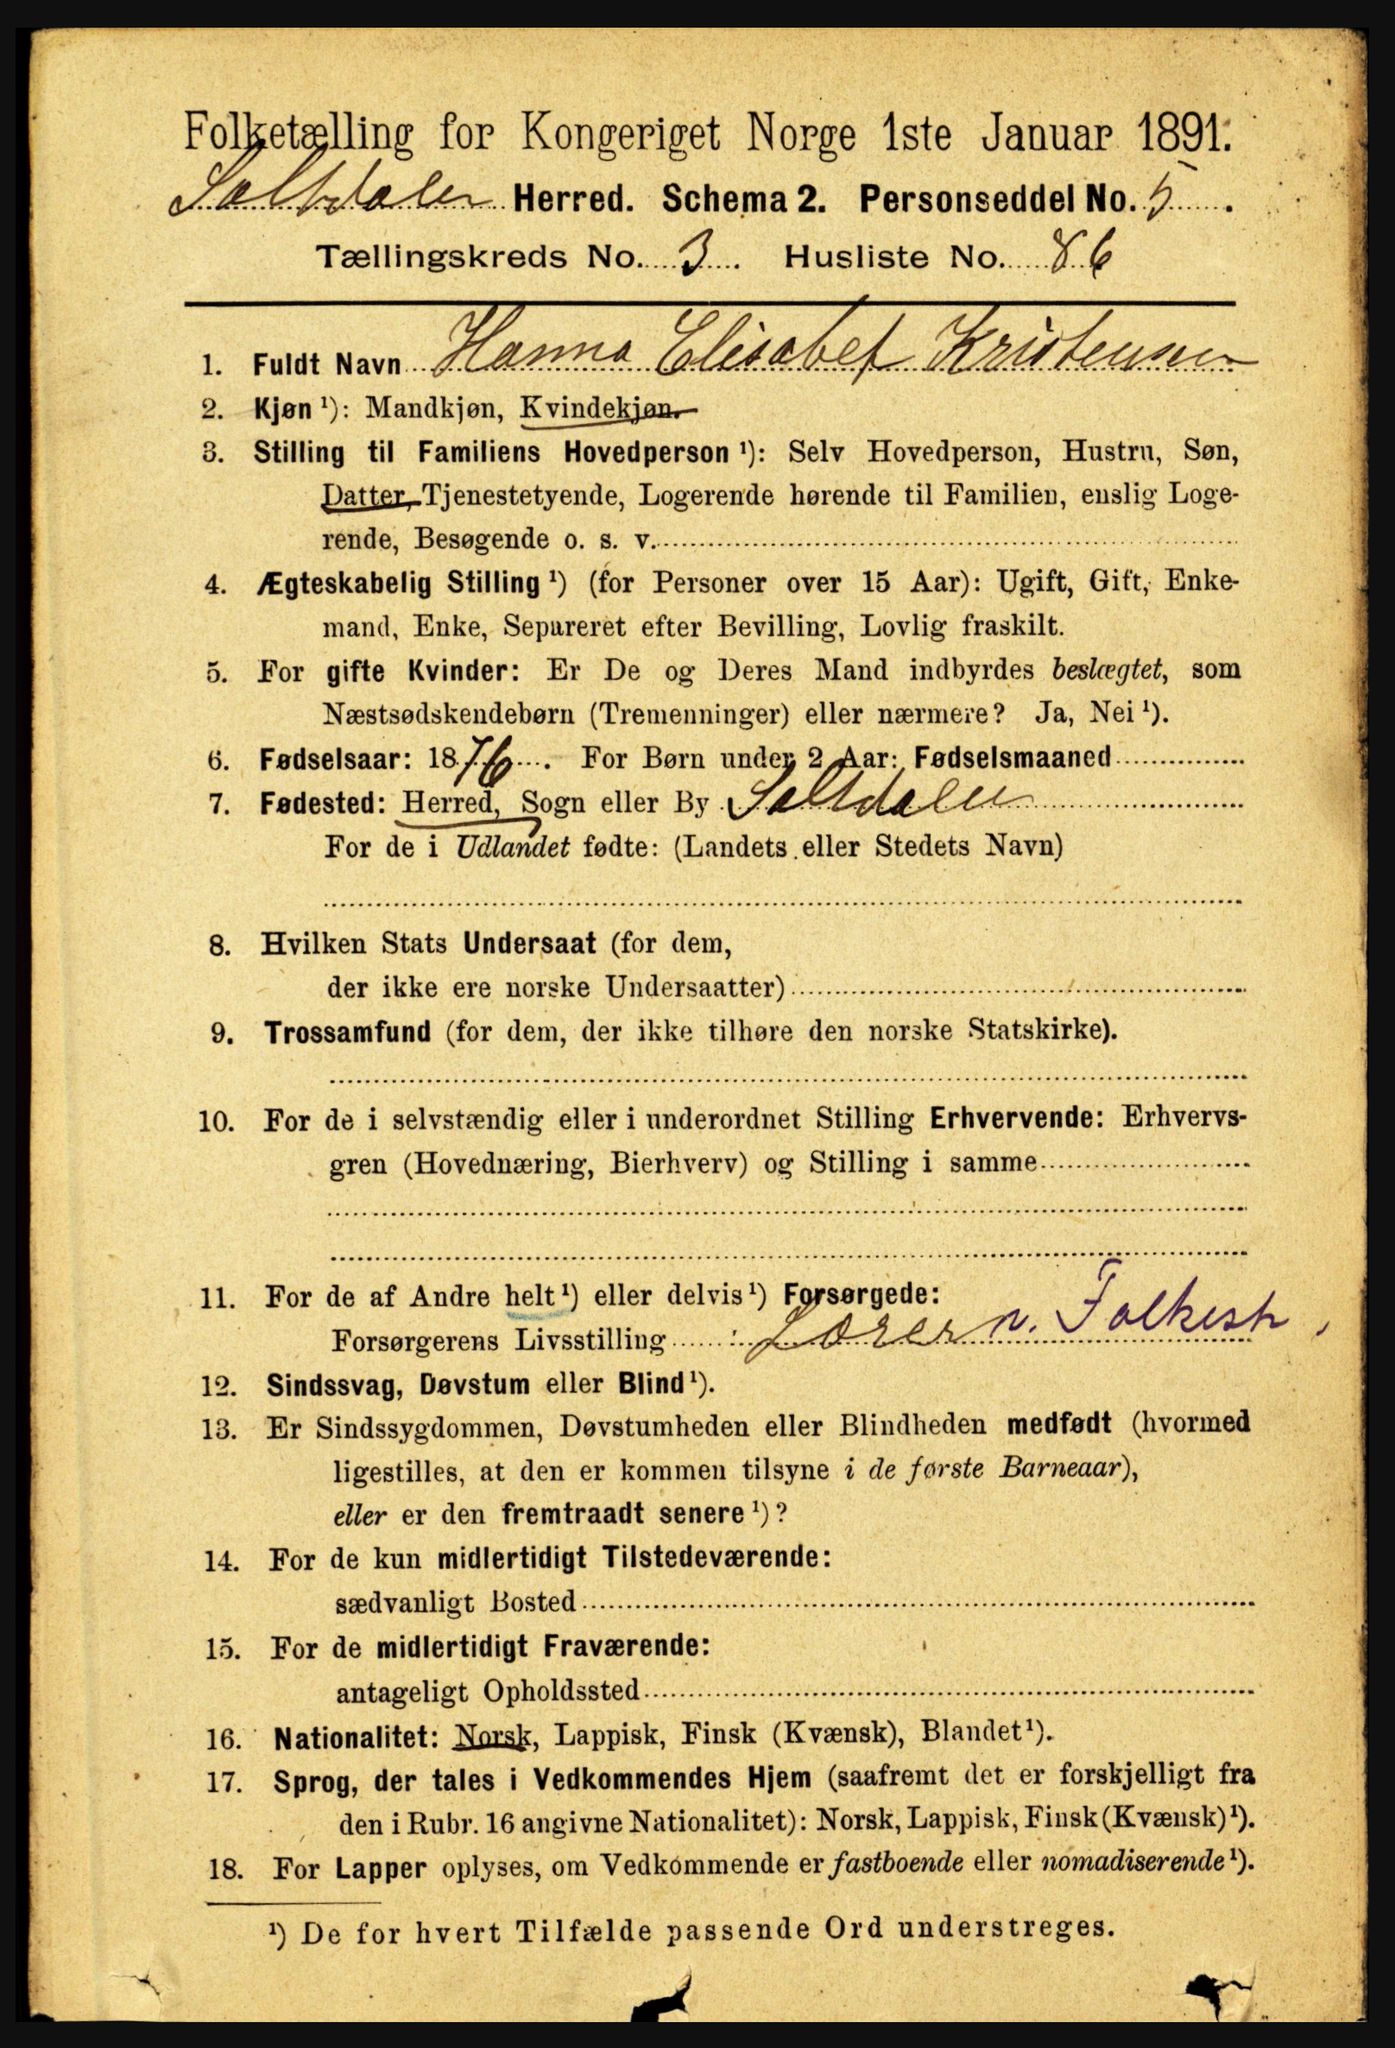 Folketælling for Kongeriget Norge 1ste Januar 1891.
Saltdalen Herred. Schema 2. Personseddel No. 5.
Tællingskreds No. 3. Husliste No. 86
1. Fuldt Navn Hanna Elisabet Kristensen
2. Kjøn ¹): Mandkjøn, Kvindekjøn.
3. Stilling til Familiens Hovedperson ¹): Selv Hovedperson, Hustru, Søn,
Datter, Tjenestetyende, Logerende hørende til Familien, enslig Loge-
rende, Besøgende o. s. v.
4. Ægteskabelig Stilling ¹) (for Personer over 15 Aar): Ugift, Gift, Enke-
mand, Enke, Separeret efter Bevilling, Lovlig fraskilt.
5. For gifte Kvinder: Er De og Deres Mand indbyrdes beslægtet, som
Næstsødskendebørn (Tremenninger) eller nærmere? Ja, Nei ¹).
6. Fødselsaar: 1876. For Børn under 2 Aar: Fødselsmaaned
7. Fødested: Herred, Sogn eller By Saltdalen
For de i Udlandet fødte: (Landets eller Stedets Navn)
8. Hvilken Stats Undersaat (for dem,
der ikke ere norske Undersaatter)
9. Trossamfund (for dem, der ikke tilhøre den norske Statskirke).
10. For de i selvstændig eller i underordnet Stilling Erhvervende: Erhvervs-
gren (Hovednæring, Bierhverv) og Stilling i samme
11. For de af Andre helt ¹) eller delvis ¹) Forsørgede:
Forsørgerens Livsstilling Lærer v. Folkesk
12. Sindssvag, Døvstum eller Blind ¹).
13. Er Sindssygdommen, Døvstumheden eller Blindheden medfødt (hvormed
ligestilles, at den er kommen tilsyne i de første Barneaar),
eller er den fremtraadt senere ¹)?
14. For de kun midlertidigt Tilstedeværende:
sædvanligt Bosted
15. For de midlertidigt Fraværende:
antageligt Opholdssted
16. Nationalitet: Norsk, Lappisk, Finsk (Kvænsk), Blandet ¹).
17. Sprog, der tales i Vedkommendes Hjem (saafremt det er forskjelligt fra
den i Rubr. 16 angivne Nationalitet): Norsk, Lappisk, Finsk (Kvænsk) ¹).
18. For Lapper oplyses, om Vedkommende er fastboende eller nomadiserende ¹).
¹) De for hvert Tilfælde passende Ord understreges.